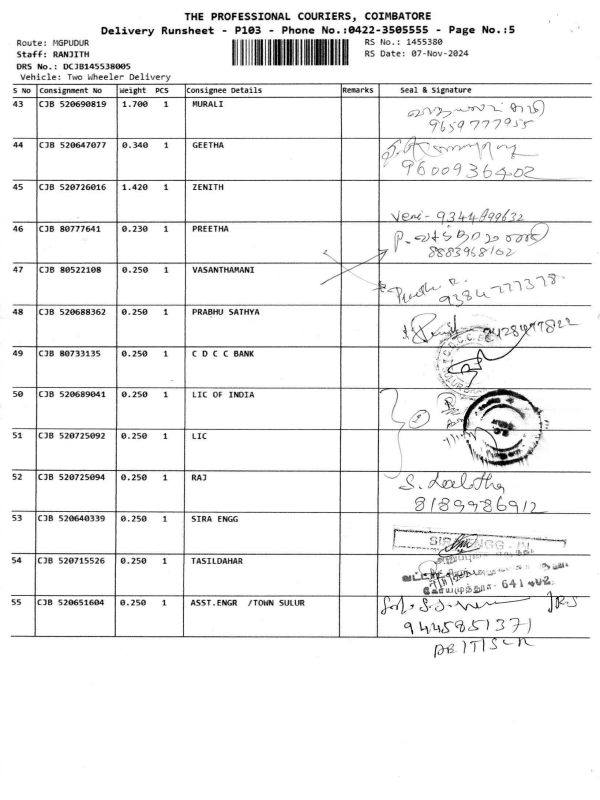 THE PROFESSIONAL COURIERS, COIMBATORE
Delivery Runsheet - P103 - Phone No.:0422-3505555 - Page No.:5
Route: MGPUDUR
RS No.: 1455380
Staff: RANJITH
RS Date: 07-Nov-2024
DRS No.: DCJB145538005
Vehicle: Two Wheeler Delivery
S No Consignment No Weight PCS Consignee Details Remarks Seal & Signature
43 CJB 520690819 1.700 1 MURALI
9659777955
44 CJB 520647077 0.340 1 GEETHA
9600936402
45 CJB 520726016 1.420 1 ZENITH
Veni - 9344899632
46 CJB 80777641 0.230 1 PREETHA
8883968102
47 CJB 80522108 0.250 1 VASANTHAMANI
9384777378
48 CJB 520688362 0.250 1 PRABHU SATHYA
9428477822
49 CJB 80733135 0.250 1 C D C C BANK
50 CJB 520689041 0.250 1 LIC OF INDIA
51 CJB 520725092 0.250 1 LIC
52 CJB 520725094 0.250 1 RAJ
8189986912
53 CJB 520640339 0.250 1 SIRA ENGG
54 CJB 520715526 0.250 1 TASILDAHAR
641 402
55 CJB 520651604 0.250 1 ASST.ENGR /TOWN SULUR
9445851371